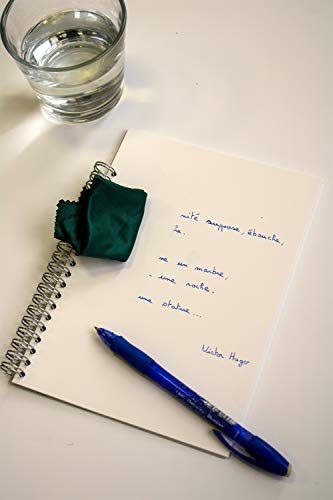 nité suppose, ébauche,
se un marbre,
une roche.
une statue...
Victor Hugo